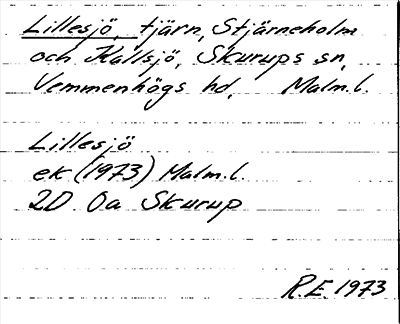 Lillesjö, tjärn, Stjärneholm
och Kallsjö, Skurups sn,
Vemmenhögs hd, Malm.l.
Lillesjö
ek (1973) Malm.l.
2D 0a Skurup
R.E. 1973